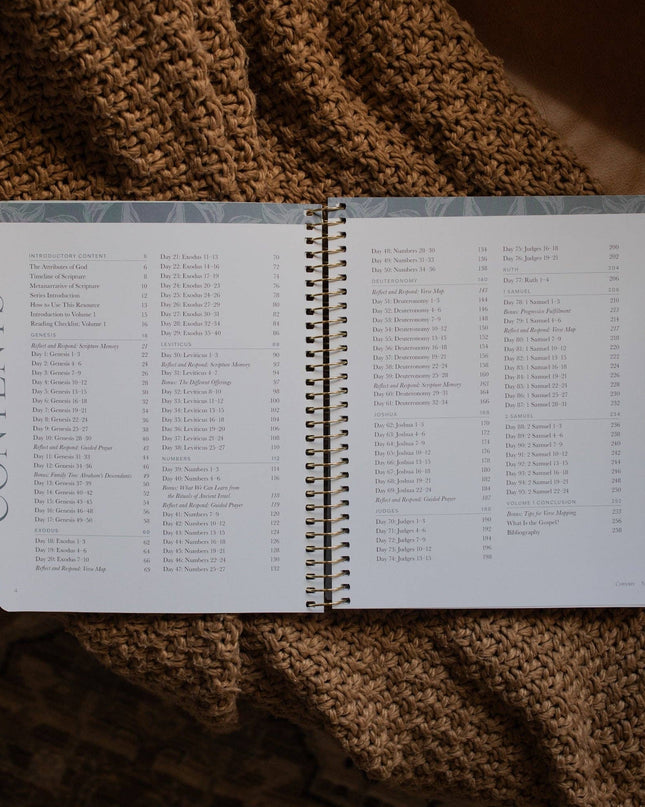 CONTENTS
INTRODUCTORY CONTENT 5
The Attributes of God 6
Timeline of Scripture 8
Metanarrative of Scripture 10
Series Introduction 12
How to Use This Resource 13
Introduction to Volume 1 15
Reading Checklist: Volume 1 16
GENESIS 18
Reflect and Respond: Scripture Memory 21
Day 1: Genesis 1–3 22
Day 2: Genesis 4–6 24
Day 3: Genesis 7–9 26
Day 4: Genesis 10–12 28
Day 5: Genesis 13–15 30
Day 6: Genesis 16–18 32
Day 7: Genesis 19–21 34
Day 8: Genesis 22–24 36
Day 9: Genesis 25–27 38
Day 10: Genesis 28–30 40
Reflect and Respond: Guided Prayer 43
Day 11: Genesis 31–33 44
Day 12: Genesis 34–36 46
Bonus: Family Tree: Abraham's Descendants 49
Day 13: Genesis 37–39 50
Day 14: Genesis 40–42 52
Day 15: Genesis 43–45 54
Day 16: Genesis 46–48 56
Day 17: Genesis 49–50 58
EXODUS 60
Day 18: Exodus 1–3 62
Day 19: Exodus 4–6 64
Day 20: Exodus 7–10 66
Reflect and Respond: Verse Map 69
4
Day 21: Exodus 11–13 70
Day 22: Exodus 14–16 72
Day 23: Exodus 17–19 74
Day 24: Exodus 20–23 76
Day 25: Exodus 24–26 78
Day 26: Exodus 27–29 80
Day 27: Exodus 30–31 82
Day 28: Exodus 32–34 84
Day 29: Exodus 35–40 86
LEVITICUS 88
Day 30: Leviticus 1–3 90
Reflect and Respond: Scripture Memory 93
Day 31: Leviticus 4–7 94
Bonus: The Different Offerings 97
Day 32: Leviticus 8–10 98
Day 33: Leviticus 11–13 100
Day 34: Leviticus 14–15 102
Day 35: Leviticus 16–18 104
Day 36: Leviticus 19–20 106
Day 37: Leviticus 21–24 108
Day 38: Leviticus 25–27 110
NUMBERS 112
Day 39: Numbers 1–3 114
Day 40: Numbers 4–6 116
Bonus: What We Can Learn from
the Rituals of Ancient Israel 118
Reflect and Respond: Guided Prayer 119
Day 41: Numbers 7–9 120
Day 42: Numbers 10–12 122
Day 43: Numbers 13–15 124
Day 44: Numbers 16–18 126
Day 45: Numbers 19–21 128
Day 46: Numbers 22–24 130
Day 47: Numbers 25–27 132
Day 48: Numbers 28–30 134
Day 49: Numbers 31–33 136
Day 50: Numbers 34–36 138
DEUTERONOMY 140
Reflect and Respond: Verse Map 143
Day 51: Deuteronomy 1–3 144
Day 52: Deuteronomy 4–6 146
Day 53: Deuteronomy 7–9 148
Day 54: Deuteronomy 10–12 150
Day 55: Deuteronomy 13–15 152
Day 56: Deuteronomy 16–18 154
Day 57: Deuteronomy 19–21 156
Day 58: Deuteronomy 22–24 158
Day 59: Deuteronomy 25–28 160
Reflect and Respond: Scripture Memory 163
Day 60: Deuteronomy 29–31 164
Day 61: Deuteronomy 32–34 166
JOSHUA 168
Day 62: Joshua 1–3 170
Day 63: Joshua 4–6 172
Day 64: Joshua 7–9 174
Day 65: Joshua 10–12 176
Day 66: Joshua 13–15 178
Day 67: Joshua 16–18 180
Day 68: Joshua 19–21 182
Day 69: Joshua 22–24 184
Reflect and Respond: Guided Prayer 187
JUDGES 188
Day 70: Judges 1–3 190
Day 71: Judges 4–6 192
Day 72: Judges 7–9 194
Day 73: Judges 10–12 196
Day 74: Judges 13–15 198
Day 75: Judges 16–18 200
Day 76: Judges 19–21 202
RUTH 204
Day 77: Ruth 1–4 206
1 SAMUEL 208
Day 78: 1 Samuel 1–3 210
Bonus: Progressive Fulfillment 213
Day 79: 1 Samuel 4–6 214
Reflect and Respond: Verse Map 217
Day 80: 1 Samuel 7–9 218
Day 81: 1 Samuel 10–12 220
Day 82: 1 Samuel 13–15 222
Day 83: 1 Samuel 16–18 224
Day 84: 1 Samuel 19–21 226
Day 85: 1 Samuel 22–24 228
Day 86: 1 Samuel 25–27 230
Day 87: 1 Samuel 28–31 232
2 SAMUEL 234
Day 88: 2 Samuel 1–3 236
Day 89: 2 Samuel 4–6 238
Day 90: 2 Samuel 7–9 240
Day 91: 2 Samuel 10–12 242
Day 92: 2 Samuel 13–15 244
Day 93: 2 Samuel 16–18 246
Day 94: 2 Samuel 19–21 248
Day 95: 2 Samuel 22–24 250
VOLUME 1 CONCLUSION 252
Bonus: Tips for Verse Mapping 255
What Is the Gospel? 256
Bibliography 258
Contents